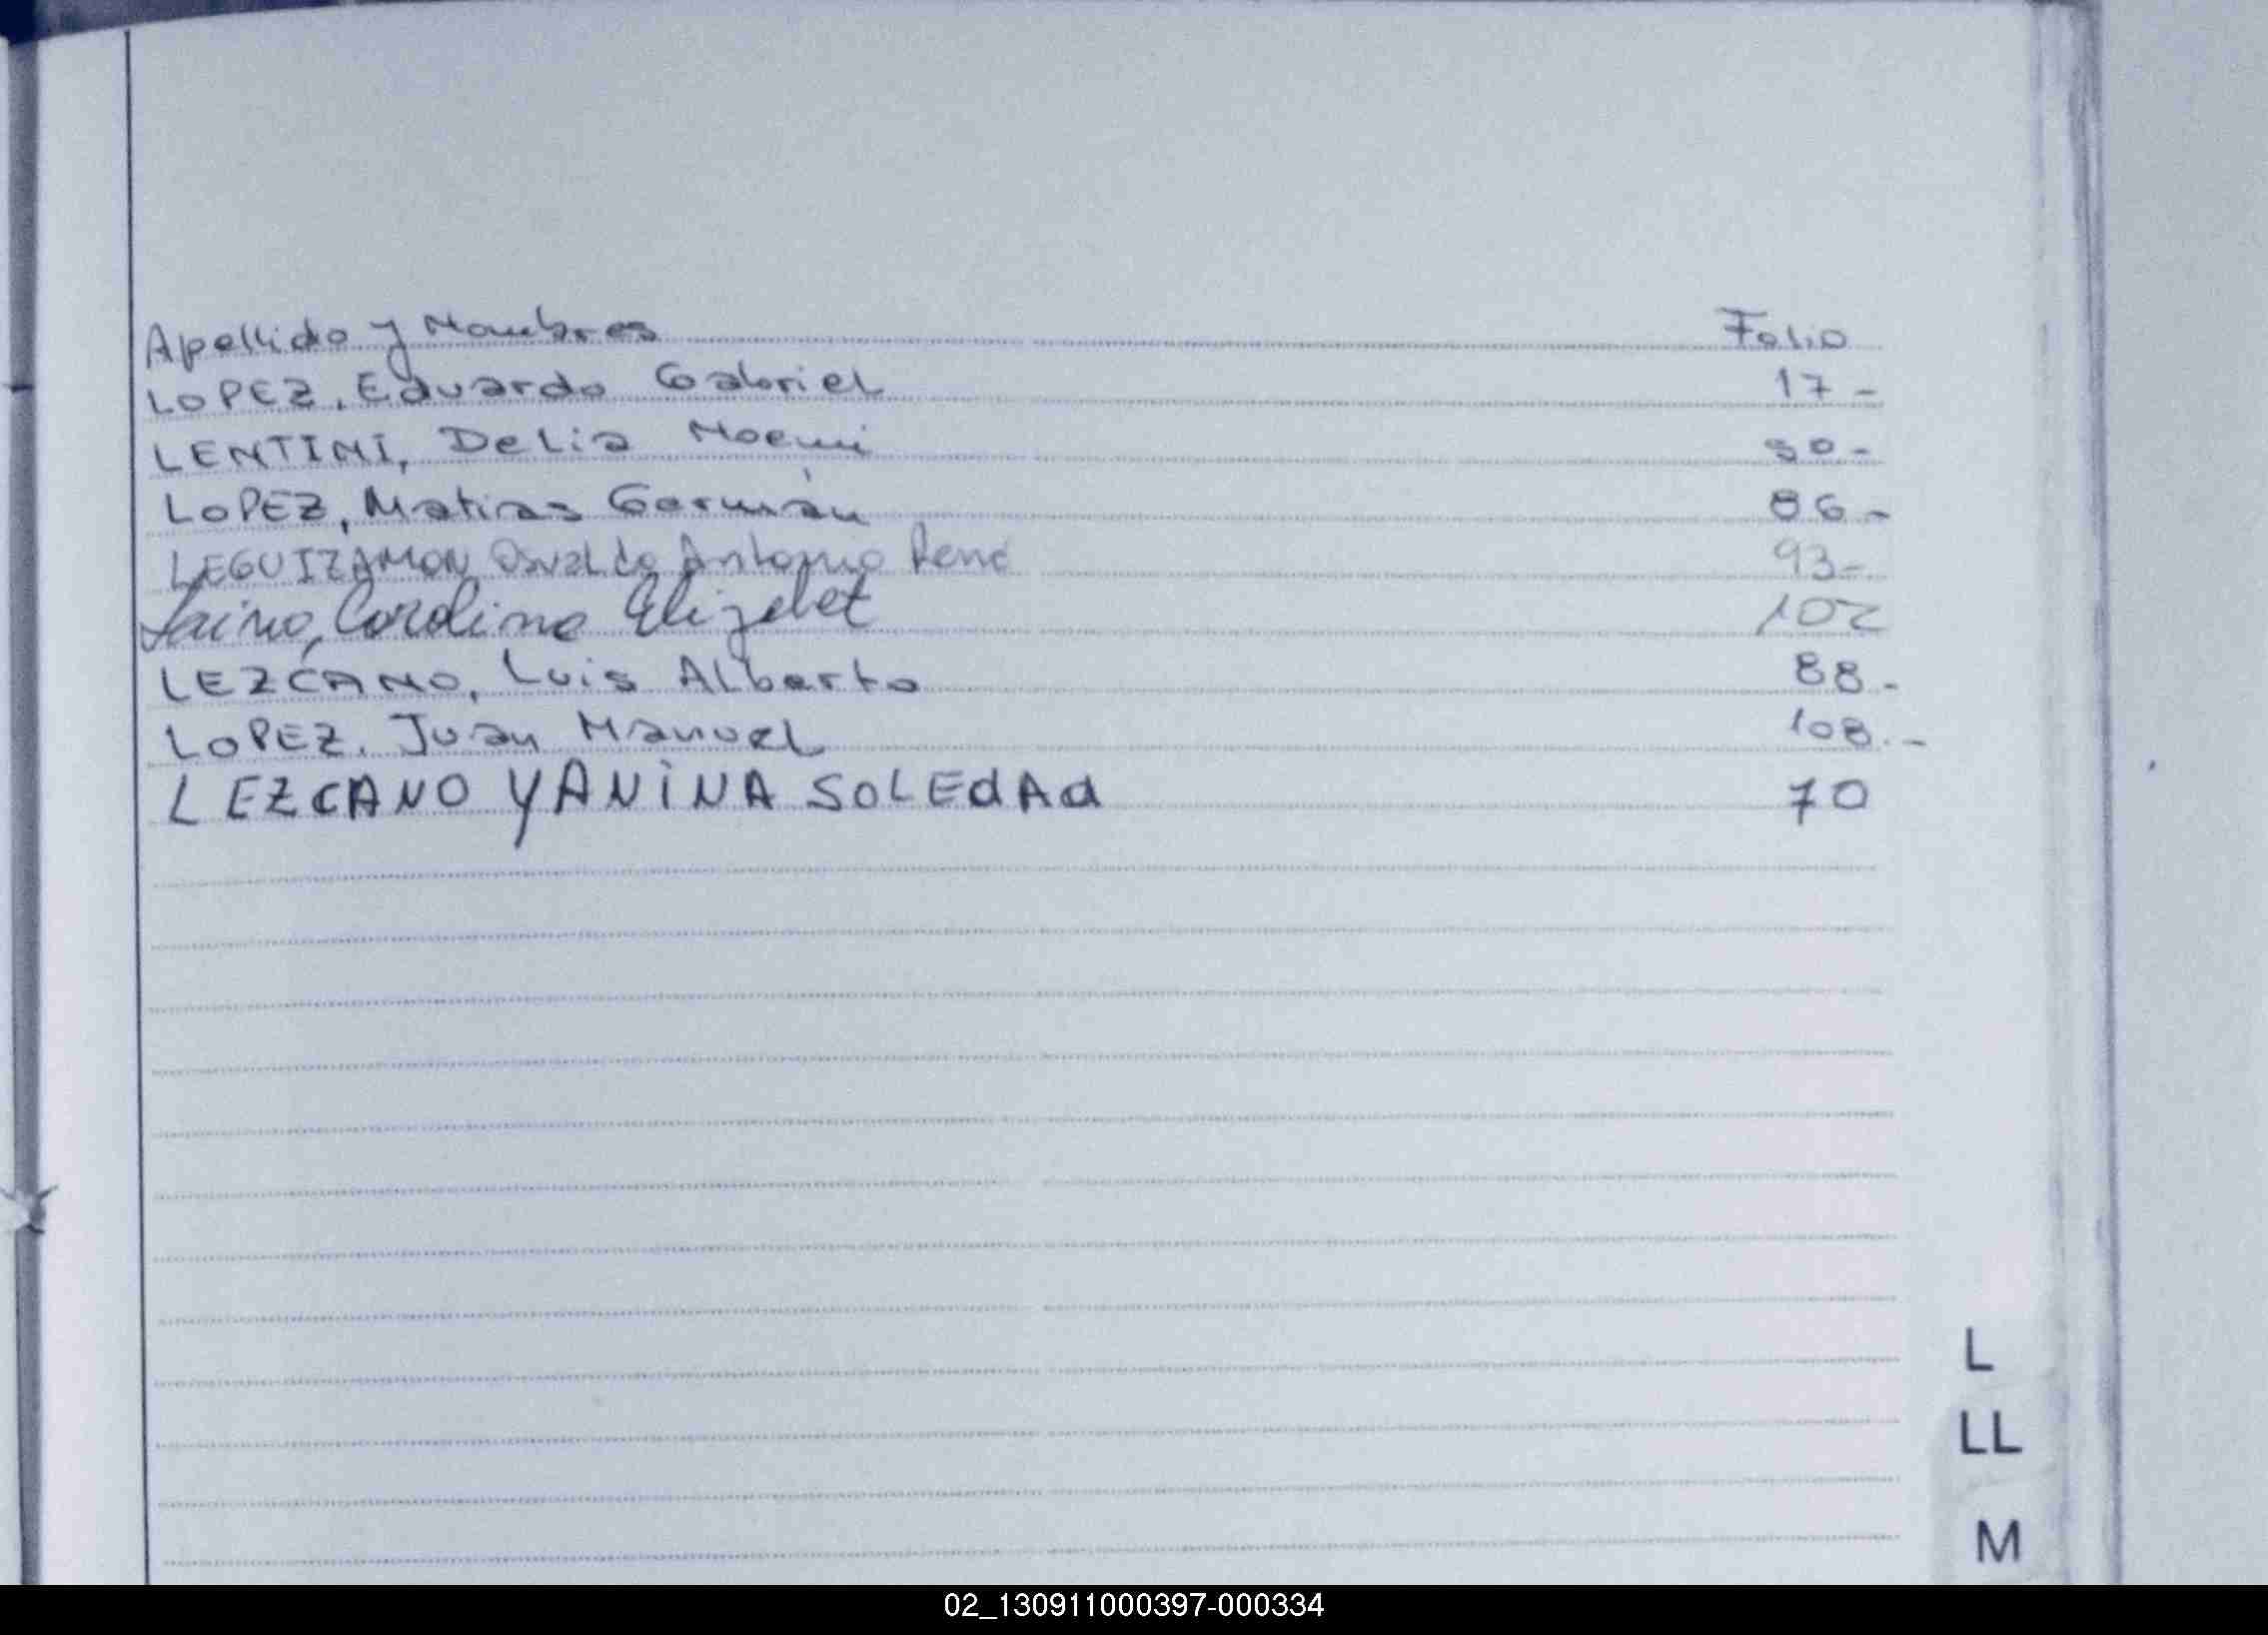 Apellido y Nombres Folio
LOPEZ, Eduardo Gabriel 17-
LENTINI, Delia Noemi 50-
LOPEZ, Matias Germán 86-
LEGUIZAMON Osvaldo Antonio René 93-
Laino, Carolina Elizabet 102
LEZCANO, Luis Alberto 88-
LOPEZ, Juan Manuel 108.-
LEZCANO YANiNA SOLEdAd 70
L
LL
M
02_130911000397-000334